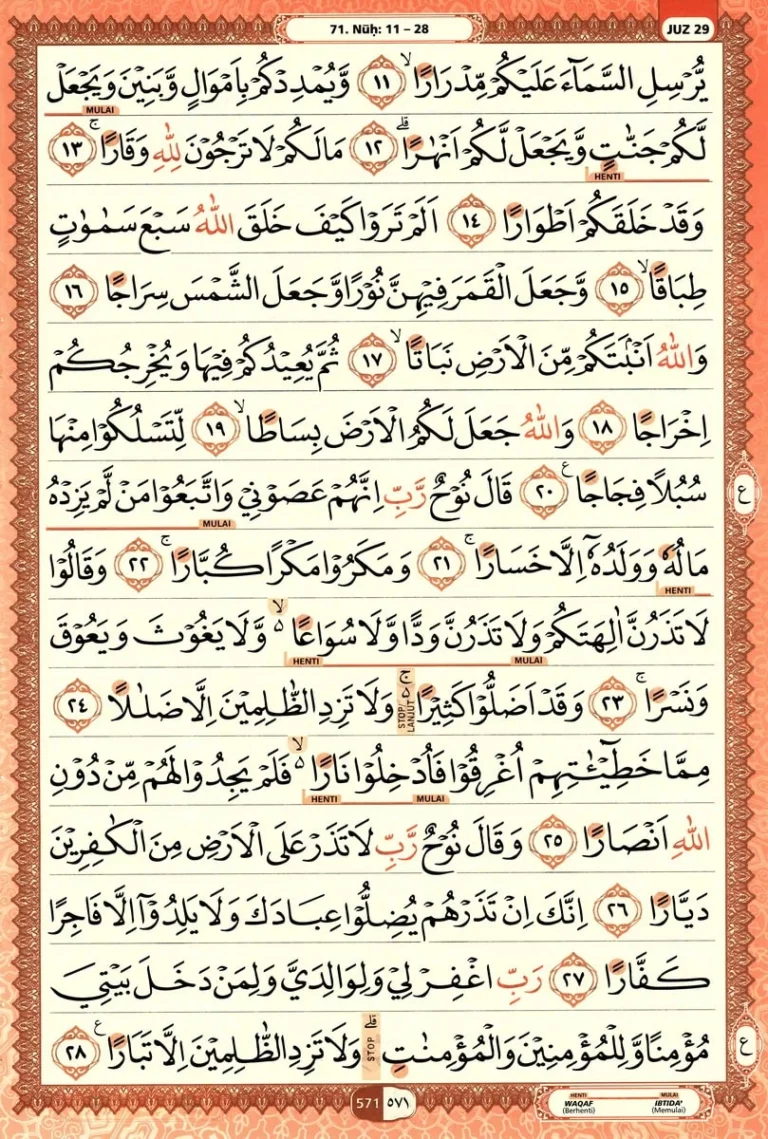 71. Nūḥ: 11 – 28
JUZ 29
يُّرْسِلِ السَّمَاۤءَ عَلَيْكُمْ مِّدْرَارًا ۙ ١١ وَّيُمْدِدْكُمْ بِاَمْوَالٍ وَّبَنِيْنَ وَيَجْعَلْ
MULAI
لَّكُمْ جَنّٰتٍ وَّيَجْعَلْ لَّكُمْ اَنْهٰرًا ۗ ١٢ مَا لَكُمْ لَا تَرْجُوْنَ لِلّٰهِ وَقَارًا ۚ ١٣
HENTI
وَقَدْ خَلَقَكُمْ اَطْوَارًا ١٤ اَلَمْ تَرَوْا كَيْفَ خَلَقَ اللّٰهُ سَبْعَ سَمٰوٰتٍ
طِبَاقًا ۙ ١٥ وَّجَعَلَ الْقَمَرَ فِيْهِنَّ نُوْرًا وَّجَعَلَ الشَّمْسَ سِرَاجًا ١٦
وَاللّٰهُ اَنْۢبَتَكُمْ مِّنَ الْاَرْضِ نَبَاتًا ۙ ١٧ ثُمَّ يُعِيْدُكُمْ فِيْهَا وَيُخْرِجُكُمْ
اِخْرَاجًا ١٨ وَاللّٰهُ جَعَلَ لَكُمُ الْاَرْضَ بِسَاطًا ۙ ١٩ لِّتَسْلُكُوْا مِنْهَا
سُبُلًا فِجَاجًا ࣖ ٢٠ قَالَ نُوْحٌ رَّبِّ اِنَّهُمْ عَصَوْنِيْ وَاتَّبَعُوْا مَنْ لَّمْ يَزِدْهُ
ع
MULAI
مَالُهٗ وَوَلَدُهٗٓ اِلَّا خَسَارًا ۚ ٢١ وَمَكَرُوْا مَكْرًا كُبَّارًا ۚ ٢٢ وَقَالُوْا
HENTI
لَا تَذَرُنَّ اٰلِهَتَكُمْ وَلَا تَذَرُنَّ وَدًّا وَّلَا سُوَاعًا ۙ ٥ وَّلَا يَغُوْثَ وَيَعُوْقَ
MULAI HENTI
وَنَسْرًا ۚ ٢٣ وَقَدْ اَضَلُّوْا كَثِيْرًا ۚ ٥ وَلَا تَزِدِ الظّٰلِمِيْنَ اِلَّا ضَلٰلًا ٢٤
STOP/LANJUT
مِمَّا خَطِيْۤـٰٔتِهِمْ اُغْرِقُوْا فَاُدْخِلُوْا نَارًا ۙ ٥ فَلَمْ يَجِدُوْا لَهُمْ مِّنْ دُوْنِ
MULAI HENTI
اللّٰهِ اَنْصَارًا ٢٥ وَقَالَ نُوْحٌ رَّبِّ لَا تَذَرْ عَلَى الْاَرْضِ مِنَ الْكٰفِرِيْنَ
دَيَّارًا ٢٦ اِنَّكَ اِنْ تَذَرْهُمْ يُضِلُّوْا عِبَادَكَ وَلَا يَلِدُوْٓا اِلَّا فَاجِرًا
كَفَّارًا ٢٧ رَبِّ اغْفِرْ لِيْ وَلِوَالِدَيَّ وَلِمَنْ دَخَلَ بَيْتِيَ
مُؤْمِنًا وَّلِلْمُؤْمِنِيْنَ وَالْمُؤْمِنٰتِۗ وَلَا تَزِدِ الظّٰلِمِيْنَ اِلَّا تَبَارًا ࣖ ٢٨
ع
STOP
571 ٥٧١
HENTI MULAI
WAQAF IBTIDA'
(Berhenti) (Memulai)